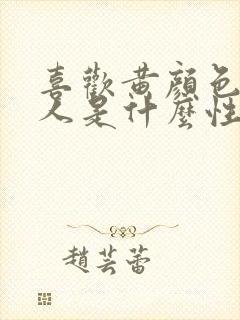 喜歡黃顏色
人是什麼性
趙芸蕾